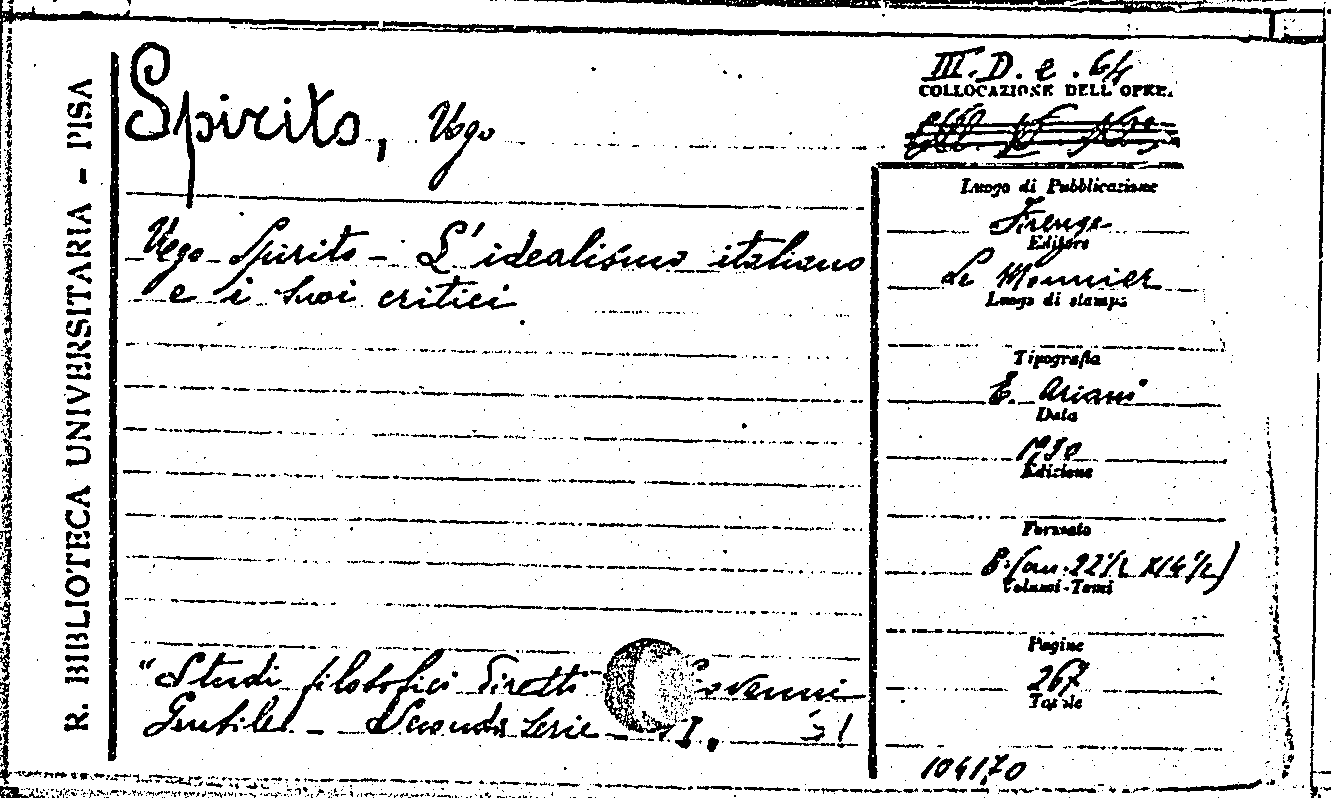 R. BIBLIOTECA UNIVERSITARIA - PISA
Spirito, Ugo
Ugo Spirito - L'idealismo italiano
e i suoi critici
"Studi filosofici diretti Giovanni
Gentile - Seconda serie - I.
III. D. e. 64
COLLOCAZIONE DELL'OPERE.
Luogo di Pubblicazione
Firenze
Editore
Le Monnier
Luogo di stampa
Tipografia
E. Ariani
Data
1930
Edizione
Formato
8° (cm. 22 1/2 x 14 1/2)
Volumi - Tomi
Pagine
267
Tavole
104170